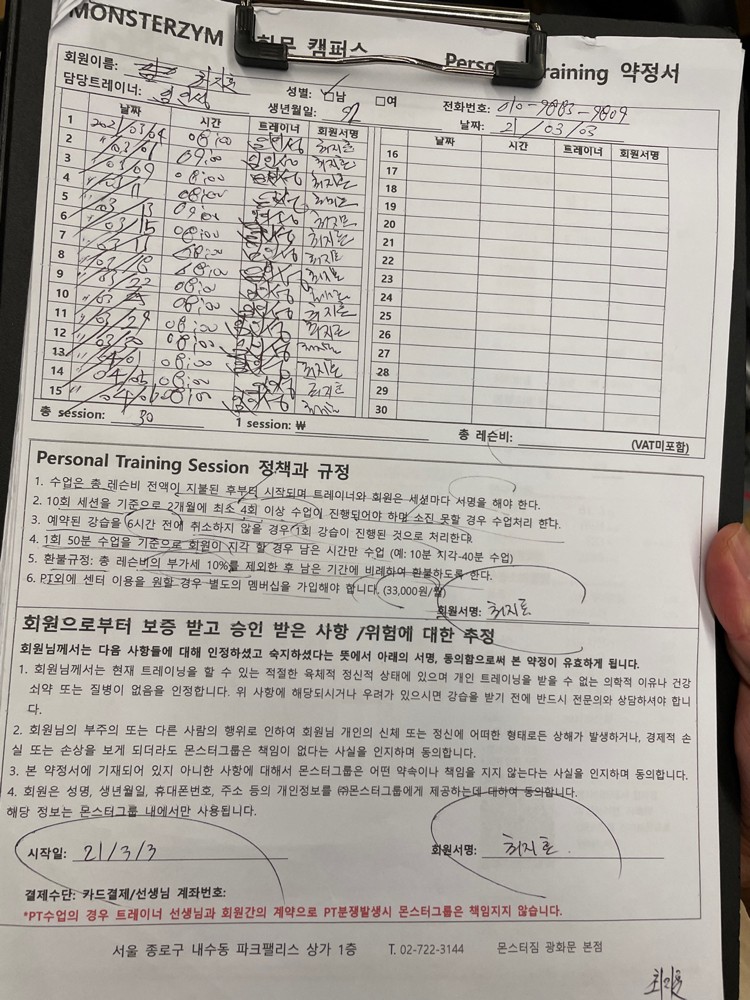 MONSTERZYM 화문 캠퍼스 Perso raining 약정서
회원이름: 최지훈 성별: □남 □여 전화번호: 010-9883-9809
담당트레이너: 생년월일: 날짜: 21/03/03
날짜 시간 트레이너 회원서명 날짜 시간 트레이너 회원서명
1 2021/03/04 08:00 최지훈 16
2 08:00 최지훈 17
3 03/09 08:00 최지훈 18
4 08:00 19
5 03/13 09:00 최지훈 20
6 03/15 08:00 최지훈 21
7 08:00 최지훈 22
8 03/18 08:00 최지훈 23
9 03/22 08:00 24
10 08:00 최지훈 25
11 03/29 08:00 최지훈 26
12 03/30 08:00 27
13 08:00 최지훈 28
14 04/05 08:00 최지훈 29
15 08:00 30
총 session: 30 1 session: ₩ 총 레슨비: (VAT미포함)
Personal Training Session 정책과 규정
1. 수업은 총 레슨비 전액이 지불된 후부터 시작되며 트레이너와 회원은 세션마다 서명을 해야 한다.
2. 10회 세션을 기준으로 2개월에 최소 4회 이상 수업이 진행되어야 하며 소진 못할 경우 수업처리 한다.
3. 예약된 강습을 6시간 전에 취소하지 않을 경우 1회 강습이 진행된 것으로 처리한다.
4. 1회 50분 수업을 기준으로 회원이 지각 할 경우 남은 시간만 수업 (예: 10분 지각-40분 수업)
5. 환불규정: 총 레슨비의 부가세 10%를 제외한 후 남은 기간에 비례하여 환불하도록 한다.
6. PT외에 센터 이용을 원할 경우 별도의 멤버십을 가입해야 합니다. (33,000원/월)
회원서명: 최지훈
회원으로부터 보증 받고 승인 받은 사항 /위험에 대한 추정
회원님께서는 다음 사항들에 대해 인정하셨고 숙지하셨다는 뜻에서 아래의 서명, 동의함으로써 본 약정이 유효하게 됩니다.
1. 회원님께서는 현재 트레이닝을 할 수 있는 적절한 육체적 정신적 상태에 있으며 개인 트레이닝을 받을 수 없는 의학적 이유나 건강
쇠약 또는 질병이 없음을 인정합니다. 위 사항에 해당되시거나 우려가 있으시면 강습을 받기 전에 반드시 전문의와 상담하셔야 합니
다.
2. 회원님의 부주의 또는 다른 사람의 행위로 인하여 회원님 개인의 신체 또는 정신에 어떠한 형태로든 상해가 발생하거나, 경제적 손
실 또는 손상을 보게 되더라도 몬스터그룹은 책임이 없다는 사실을 인지하며 동의합니다.
3. 본 약정서에 기재되어 있지 아니한 사항에 대해서 몬스터그룹은 어떤 약속이나 책임을 지지 않는다는 사실을 인지하며 동의합니다.
4. 회원은 성명, 생년월일, 휴대폰번호, 주소 등의 개인정보를 ㈜몬스터그룹에게 제공하는데 대하여 동의합니다.
해당 정보는 몬스터그룹 내에서만 사용됩니다.
시작일: 21/3/3 회원서명: 최지훈
결제수단: 카드결제/선생님 계좌번호:
*PT수업의 경우 트레이너 선생님과 회원간의 계약으로 PT분쟁발생시 몬스터그룹은 책임지지 않습니다.
서울 종로구 내수동 파크팰리스 상가 1층 T. 02-722-3144 몬스터짐 광화문 본점
최지훈